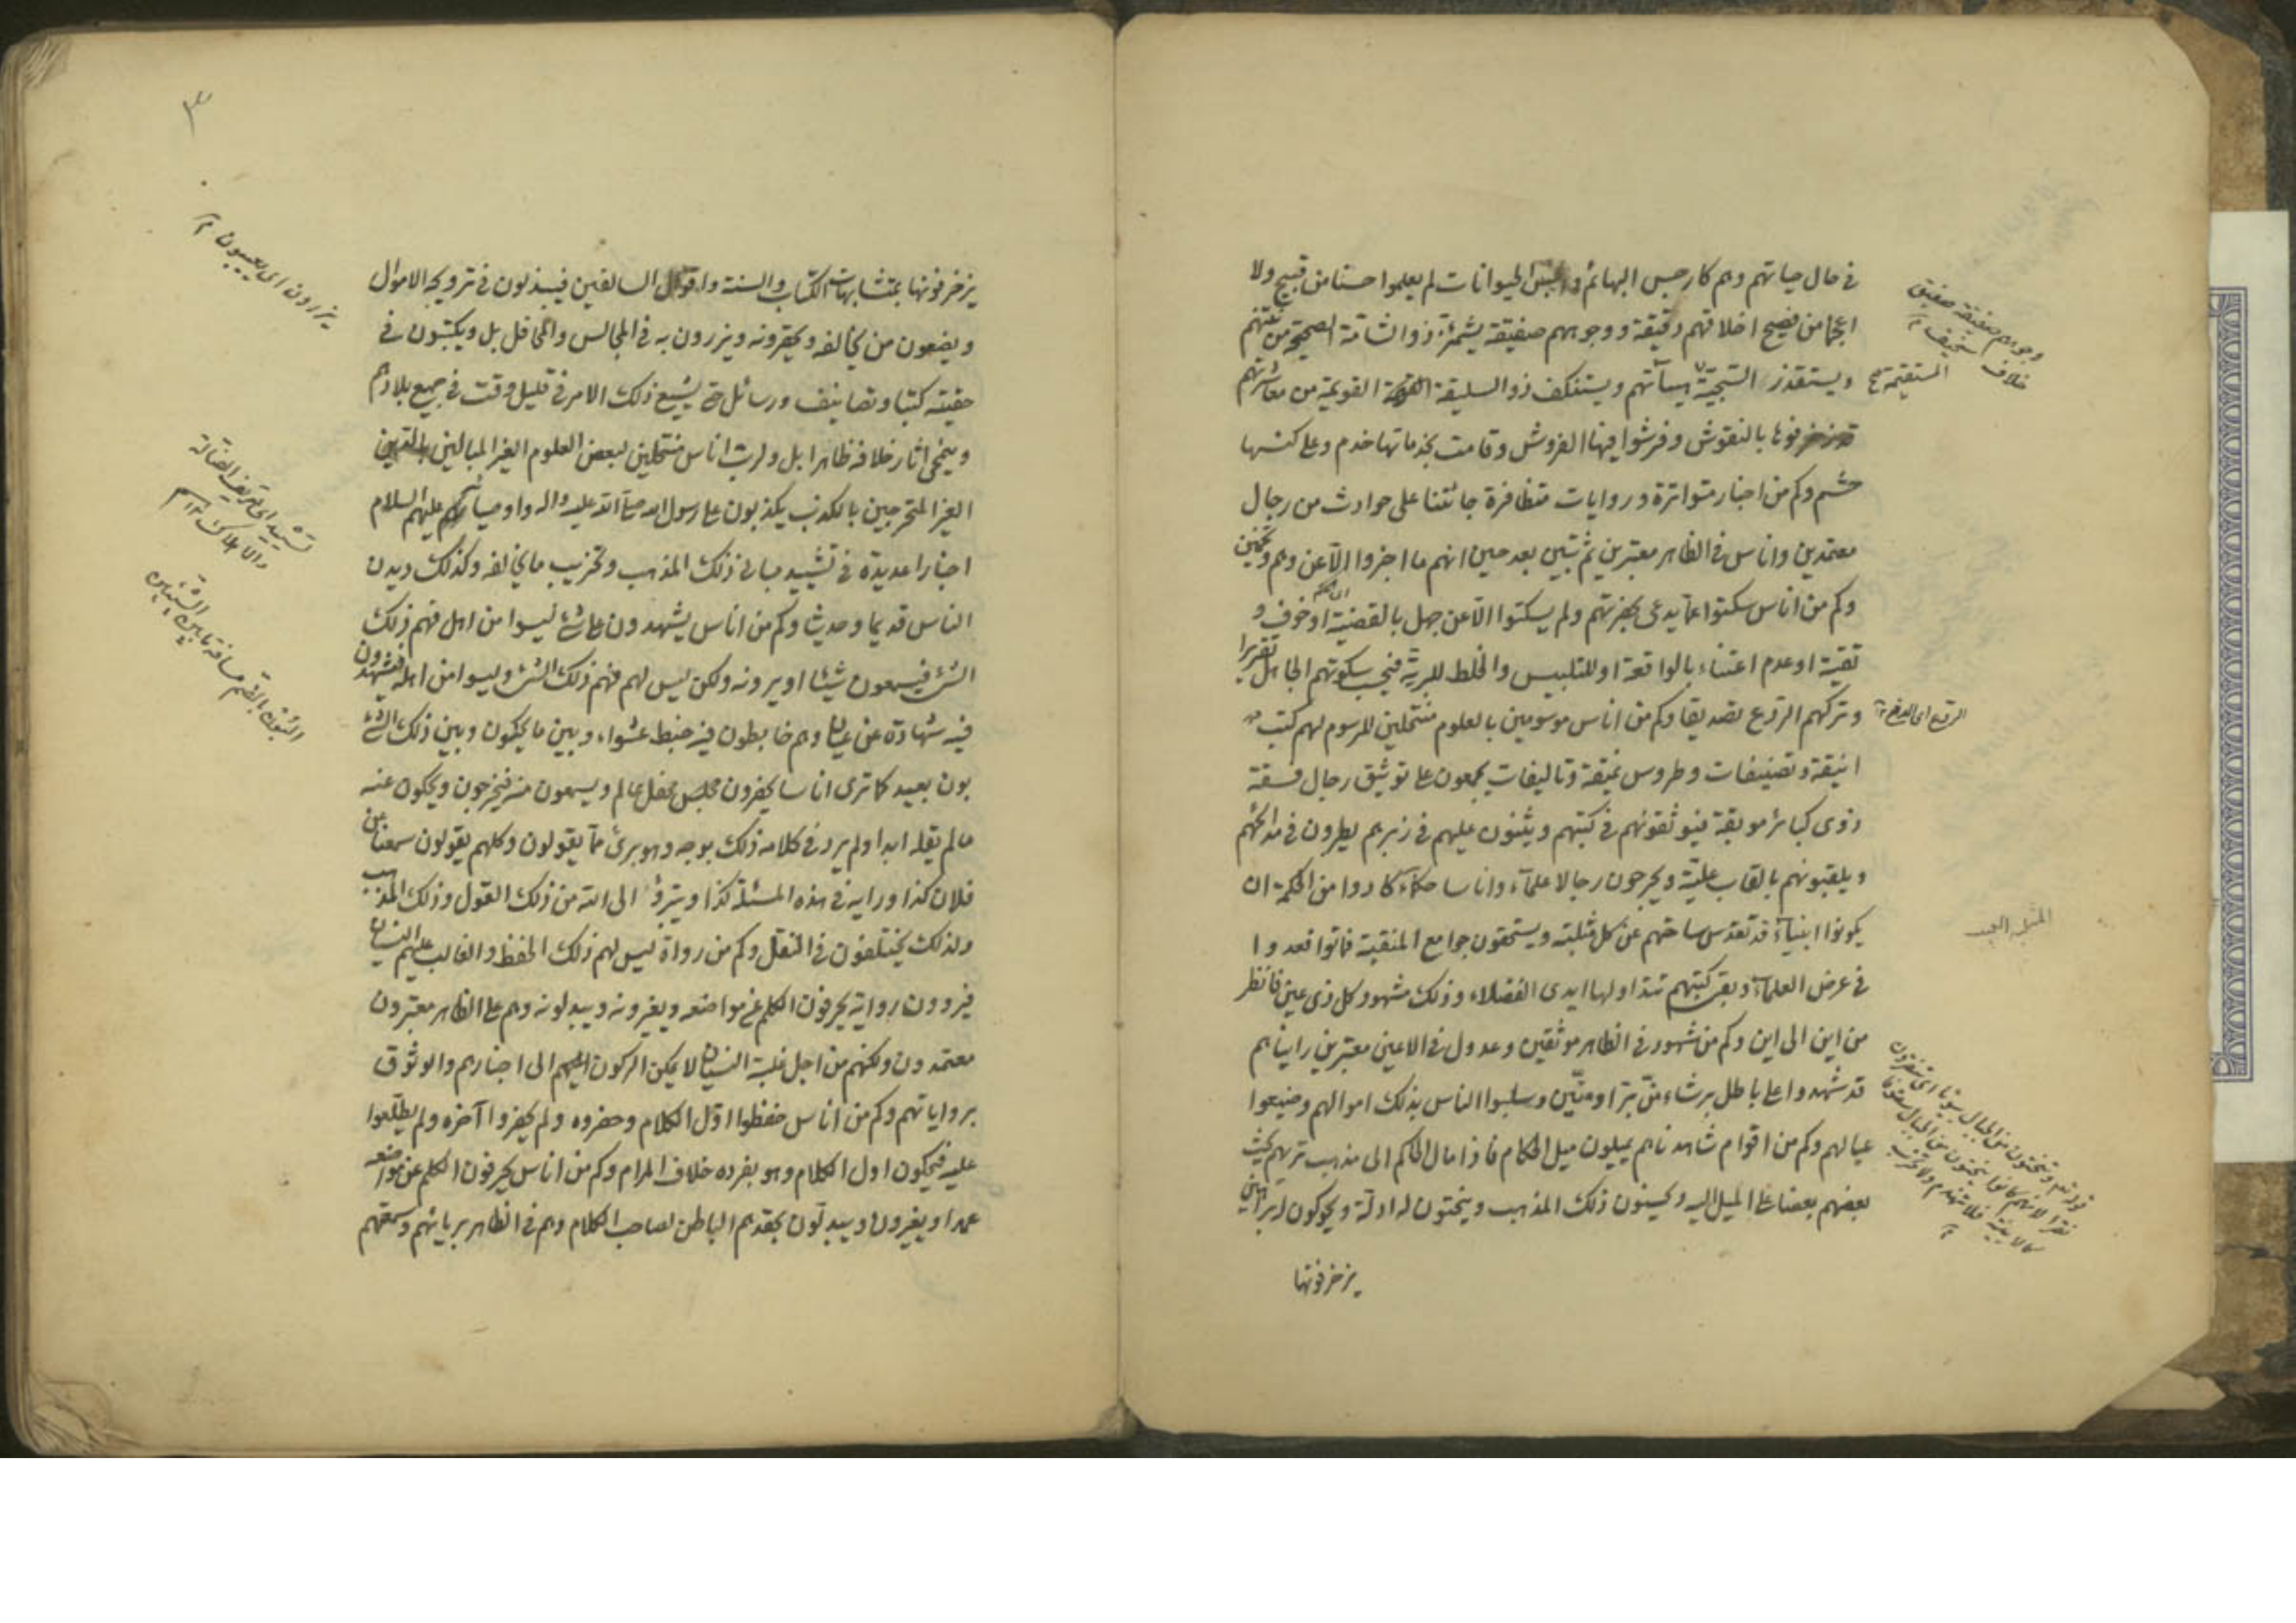 في حال حياتهم وهم كارجس البهائم و الحيوانات لم يعلموا حسنا من قبيح ولا
اعجما من فصيح اخلاقهم دقيقة ووجوههم صفيقة يشمئز ذو الشامة الصحيحة من
ويستقذر السجيّة هيئاتهم ويستنكف ذو السليقة القويمة من معاشرتهم
المستقيمة صح
وجوههم صفيقة صفيق
خلاف سخيف
قد زخرفوها بالنقوش وفرشوا فيها الفروش وقامت بخدماتها خدم وعلى كنسها
حشم وكم من اخبار متواترة وروايات متظافرة جائتنا على حوادث من رجال
معتمدين واناس في الظاهر معتبرين ثم تبيّن بعد حين انهم ما اخبروا الّا عن وهم وتخمين
وكم من اناس سكتوا عمّا يدعى بحضرتهم ولم يسكتوا الّا عن جهل بالقضية او خوف و
تقية او عدم اعتناء بالواقعة او للتلبيس والخلط للبريّة فيحسب سكوتهم الجاهل تقريرا
وتركهم الردع تصديقا وكم من اناس موسومين بالعلوم منتحلين للرسوم لهم كتب
انيقة وتصنيفات وطروس نميقة وتاليفات يجمعون على توثيق رجال فسقة
ذوى كبائر موبقة فيوثقونهم في كتبهم ويثنون عليهم في زبرهم يطرون في مدائحهم
ويلقبونهم بالقاب عليّة ويجرحون رجالا علماء واناسا حكماء كادوا من الحكمة ان
يكونوا انبياء قد تقدس ساحتهم عن كل مثلبته ويستحقون جوامع المنقبة فماتوا فعدوا
في عرض العلماء وبقى كتبهم تتداولها ايدى الفضلاء وذلك مشهود كل ذى عين فانظر
من اين الى اين وكم من شهود في الظاهر موثقين وعدول في الاعين معتبرين رايناهم
قد شهدوا على باطل برشاء منّ تبرا او منّين وسلبوا الناس بذلك اموالهم وضيعوا
عيالهم وكم من اقوام شاهدناهم يميلون ميل الحكام فاذا مال الحاكم الى مذهب تريهم يحث
بعضهم بعضا على الميل اليه ويحسنون ذلك المذهب وينحتون له ادلّة ويحوكون له براهين
يزخرفونها
يزخرفونها بمتشابهات الكتاب والسنة واقوال السالفين فيبذلون في ترويجه الاموال
ويضعون من يخالفه ويحقرونه ويزرون به في المجالس والمحافل بل ويكتبون في
حقيته كتبا وتصانيف ورسائل حتى يشيع ذلك الامر في قليل وقت في جميع بلادهم
وينمحي اثار خلافه ظاهرا بل ولرب اناس منتحلين لبعض العلوم الغير المبالين
الغير المتحرجين بالكذب يكذبون على رسول الله صلى الله عليه واله واوصيائه عليهم السلام
اخبارا عديدة في تشييد مبانى ذلك المذهب وتخريب ما يخالفه وكذلك ديدن
الناس قديما وحديثا وكم من اناس يشهدون على شئ ليسوا من اهل فهم ذلك
الشئ فيسمعون شيئا او يرونه ولكن ليس لهم فهم ذلك الشئ وليسوا من اهله فيشهدون
فيه شهادة عن عيان وهم خابطون فيه خبط عشواء وبين ما يحكون وبين ذلك الشئ
بون بعيد كما ترى اناسا يحضرون مجلس محفل عالم ويسمعون منه فيخرجون ويحكون عنه
ما لم يقله ابدا ولم يرد في كلامه ذلك بوجه وهو برئ ممّا يقولون وكلهم يقولون سمعنا من
فلان كذا ورايه في هذه المسئلة كذا ويتبرؤ الى الله من ذلك القول وذلك المذهب
ولذلك يختلفون في النقل وكم من رواة ليس لهم ذلك الحفظ والغالب عليهم النسيان
فيروون رواية يحرفون الكلم عن مواضعه ويغيرونه ويبدلونه وهم على الظاهر معتبرون
معتمدون ولكنهم من اجل غلبة النسيان لا يمكن الركون اليهم الى اخبارهم والوثوق
برواياتهم وكم من اناس حفظوا اوّل الكلام وحضروه ولم يحضروا آخره ولم يطّلعوا
عليه فيحكون اول الكلام وهو بفرده خلاف المرام وكم من اناس يحرفون الكلم عن مواضعه
عمدا ويغيرون ويبدلون بحقدهم الباطن لصاحب الكلام وهم في الظاهر بريائهم وسمعتهم
٣
يزرون اى يعيبون